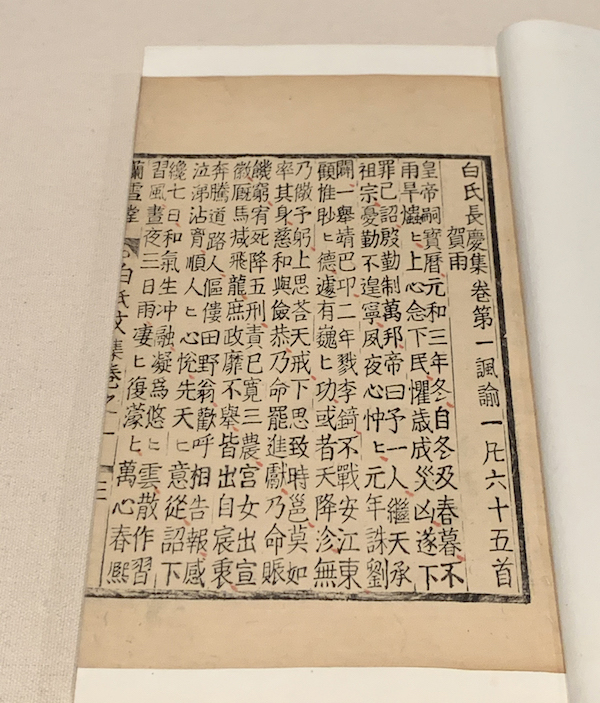 白氏長慶集卷第一諷諭一凡六十五首
賀雨
皇帝嗣寶曆元和三年冬自冬及春暮不
雨旱爞〻上心念下民懼歲成災凶遂下
罪己詔殷勤制萬邦帝曰予一人繼天承
祖宗憂勤不遑寧夙夜心忡〻元年誅劉
闢一舉靖巴卭二年戮李錡不戰安江東
顧惟眇〻德遽有巍〻功或者天降沴無
乃儆予躬上思荅天戒下思致時邕莫如
率其身慈和與儉恭乃命罷進獻乃命賑
饑窮有死降五刑責已寬三農宮女出宣
徽廐馬減飛龍庶政靡不舉皆出自宸衷
奔騰道路人傴僂田野翁歡呼相告報感
泣涕沾胷順人〻心悅先天〻意從詔下
纔七日和氣生冲融凝爲悠〻雲散作習
習風晝夜三日雨凄〻復濛〻萬心春熙
蘭雪堂 白氏文集卷之一